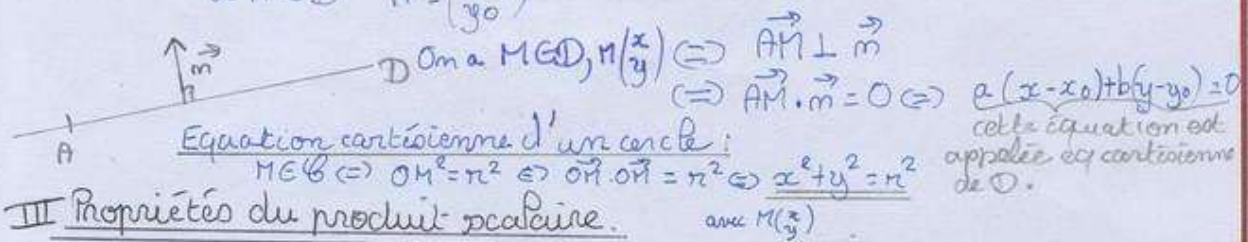 y0
n⃗
D On a M∈D, M(x y) <=> AM⃗ ⊥ n⃗
<=> AM⃗ . n⃗ = 0 <=> a(x-x0)+b(y-y0)=0
cette équation est
appelée eq cartésienne
de D.
A
Equation cartésienne d'un cercle :
M∈C <=> OM² = r² <=> OM⃗ . OM⃗ = r² <=> x²+y² = r²
avec M(x y)
III Propriétés du produit scalaire.